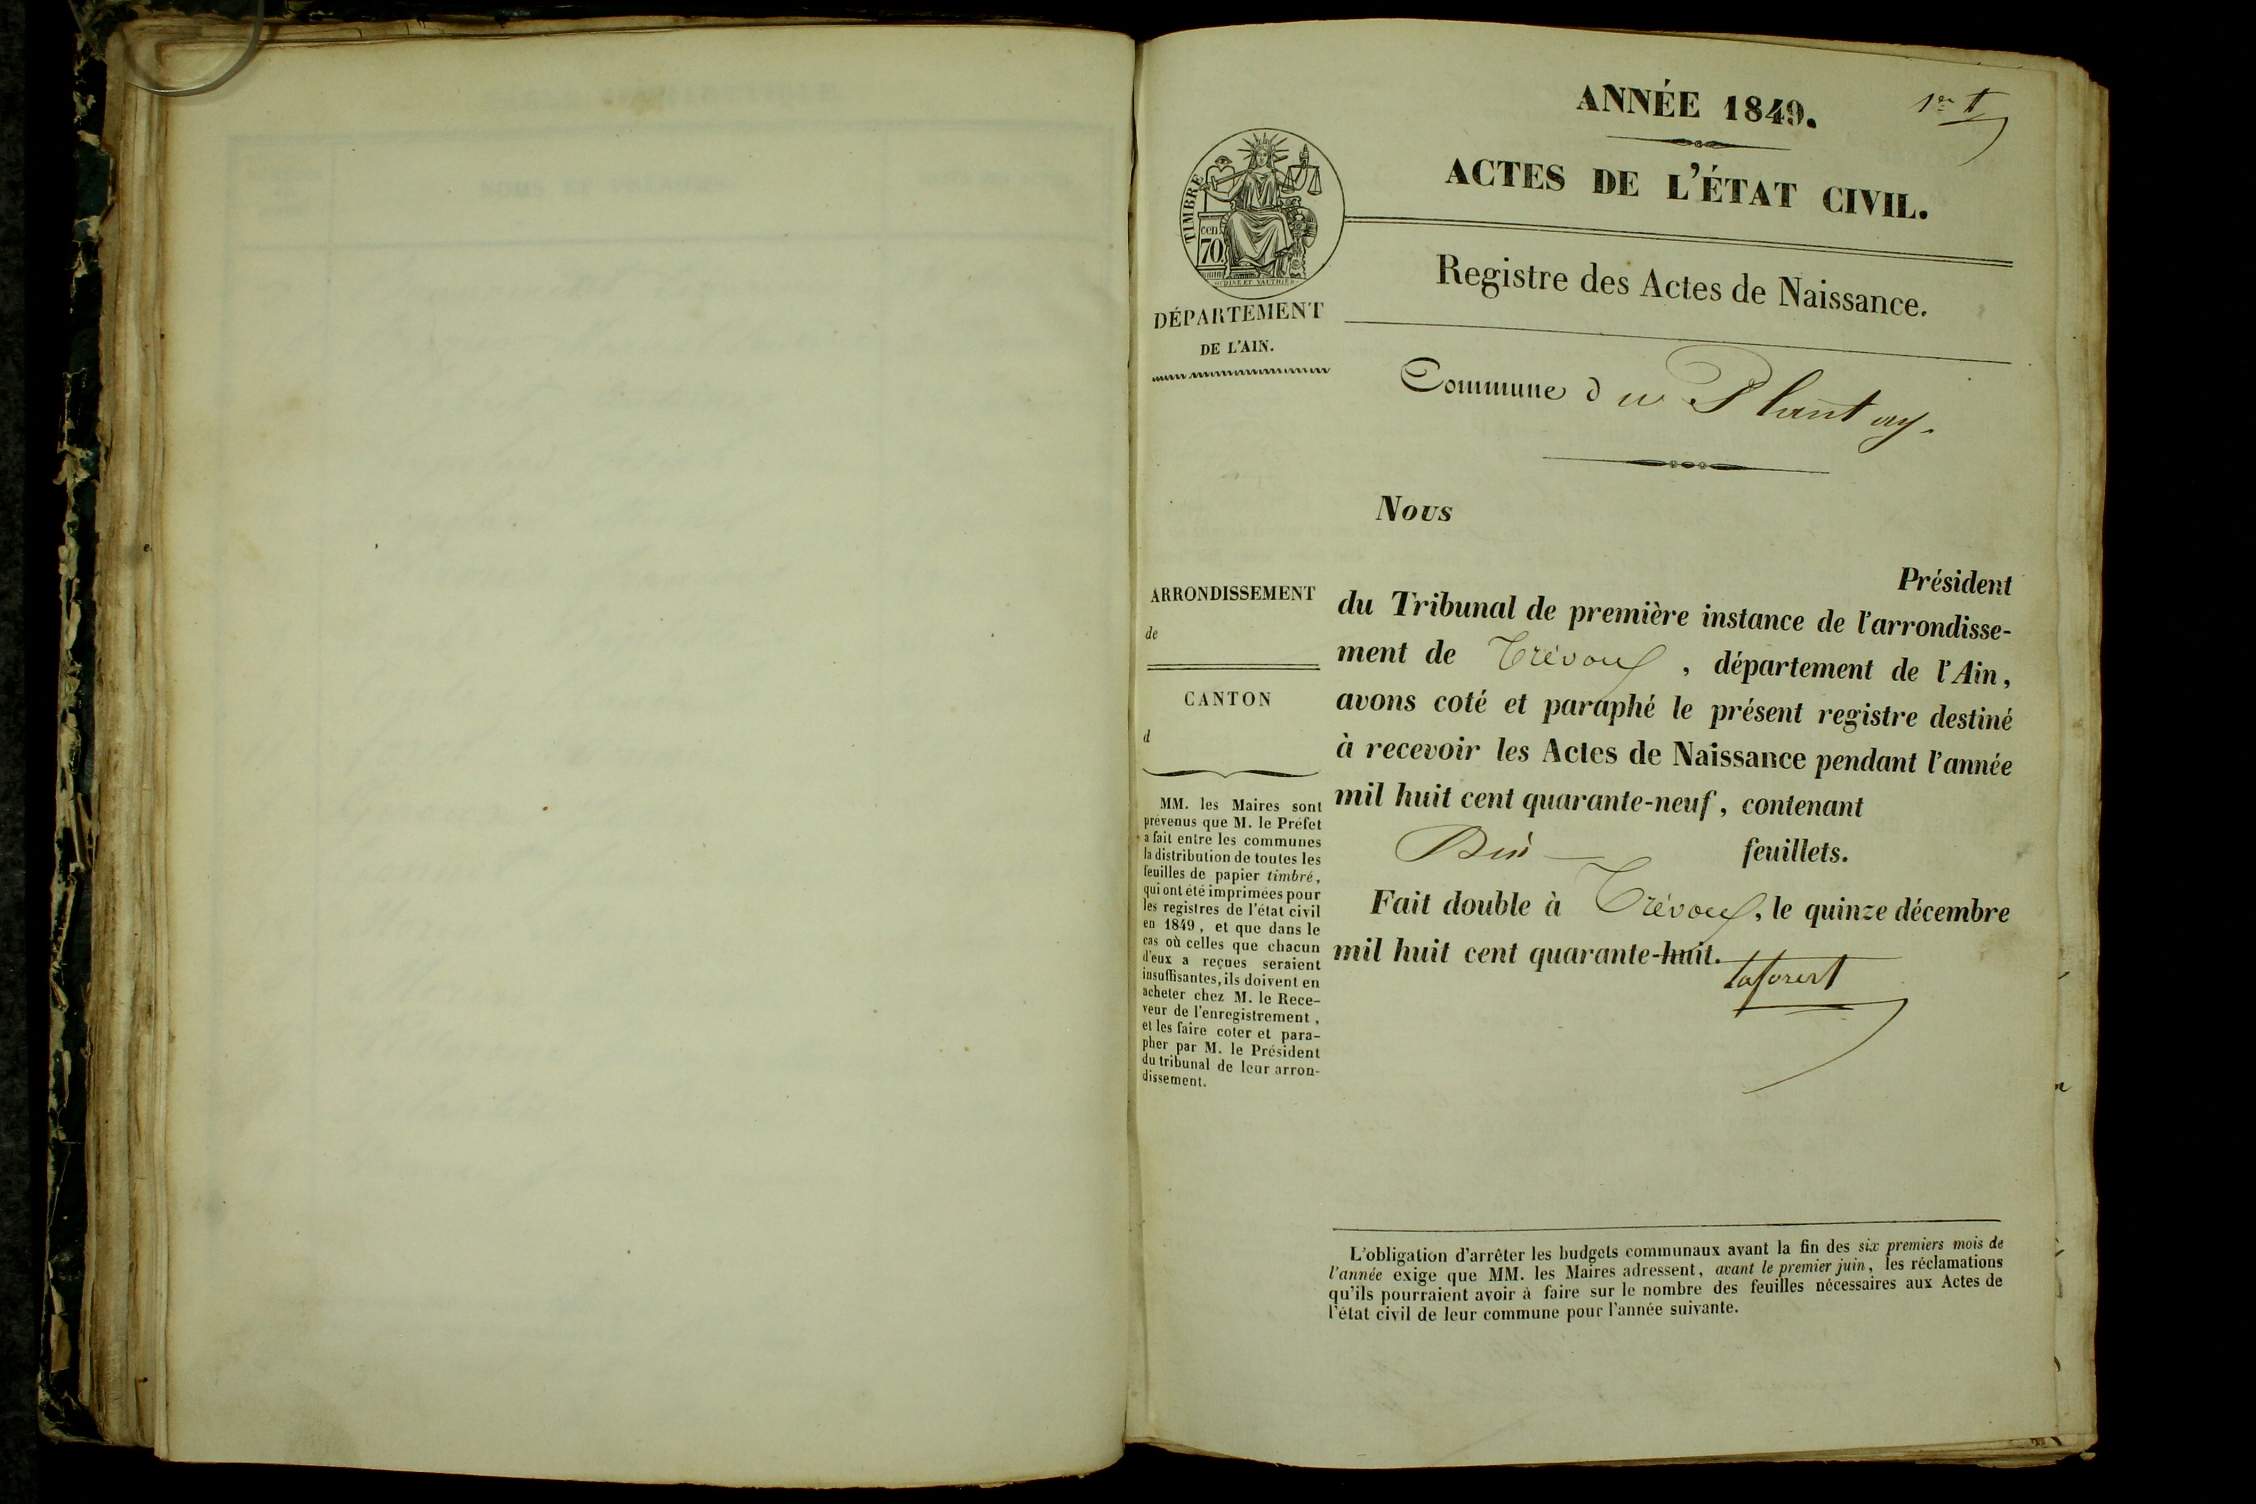 ANNÉE 1849.
1er
ACTES DE L'ÉTAT CIVIL.
TIMBRE
cen.
70
Registre des Actes de Naissance.
DÉPARTEMENT
DE L'AIN.
Commune du Plantay.
Nous
Président
du Tribunal de première instance de l'arrondisse-
ment de Trévoux, département de l'Ain,
avons coté et paraphé le présent registre destiné
à recevoir les Actes de Naissance pendant l'année
mil huit cent quarante-neuf, contenant
feuillets.
Fait double à Trévoux, le quinze décembre
mil huit cent quarante-huit.
ARRONDISSEMENT
de
CANTON
d
MM. les Maires sont
prévenus que M. le Préfet
a fait entre les communes
la distribution de toutes les
feuilles de papier timbré,
qui ont été imprimées pour
les registres de l'état civil
en 1849, et que dans le
cas où celles que chacun
d'eux a reçues seraient
insuffisantes, ils doivent en
acheter chez M. le Rece-
veur de l'enregistrement,
et les faire coter et para-
pher par M. le Président
du tribunal de leur arron-
dissement.
L'obligation d'arrêter les budgets communaux avant la fin des six premiers mois de
l'année exige que MM. les Maires adressent, avant le premier juin, les réclamations
qu'ils pourraient avoir à faire sur le nombre des feuilles nécessaires aux Actes de
l'état civil de leur commune pour l'année suivante.